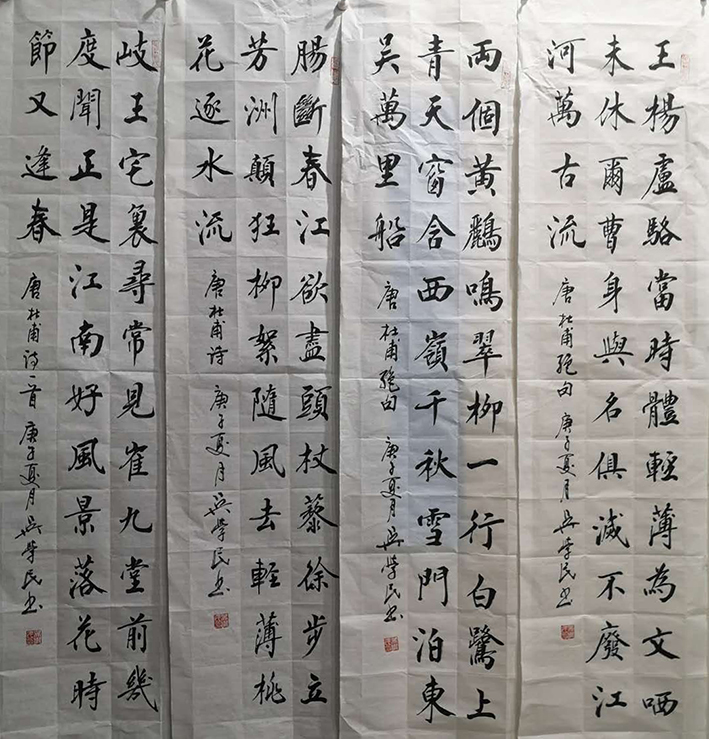 王楊盧駱當時體輕薄為文哂
未休爾曹身與名俱滅不廢江
河萬古流 唐杜甫絕句 庚子夏月吳學民书
兩個黃鸝鳴翠柳一行白鷺上
青天窗含西嶺千秋雪門泊東
吳萬里船 唐杜甫絕句 庚子夏月吳學民书
腸斷春江欲盡頭杖藜徐步立
芳洲顛狂柳絮隨風去輕薄桃
花逐水流 唐杜甫诗 庚子夏月吳學民书
岐王宅裏尋常見崔九堂前幾
度聞正是江南好風景落花時
節又逢春 唐杜甫诗一首 庚子夏月吳學民书